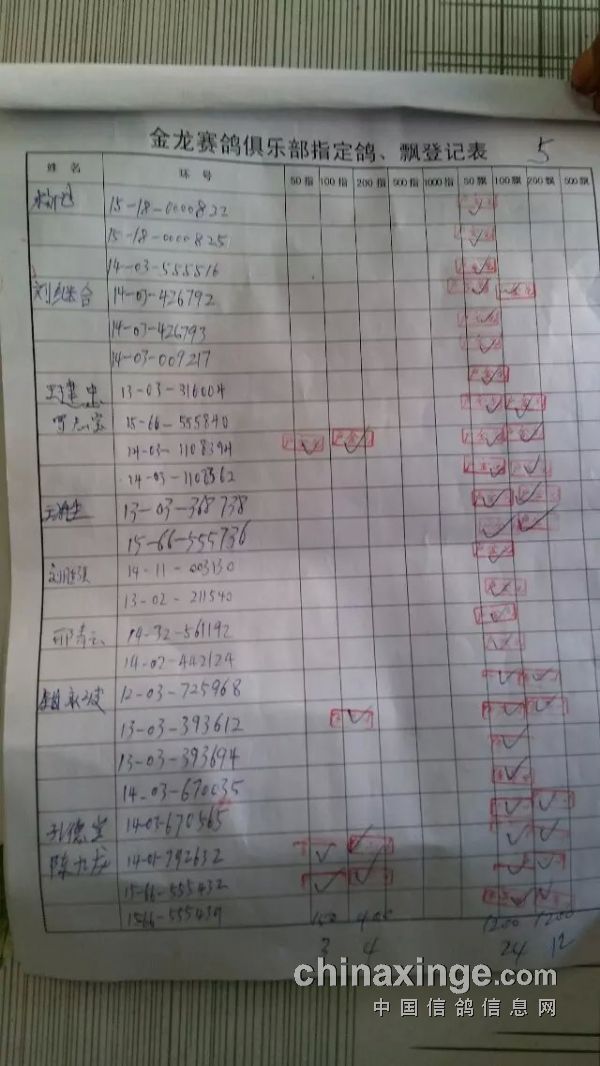 金龙赛鸽俱乐部指定鸽、飘登记表 5
姓名 环号 50指 100指 200指 500指 1000指 50飘 100飘 200飘 500飘
15-18-0000822
15-18-0000825
14-03-555516
14-03-426792
14-03-426793
14-03-009217
13-03-316004
15-66-555840
14-03-1108394
14-03-1108362
13-03-368738
15-66-555736
14-11-003130
13-02-211540
14-32-561192
14-02-442124
12-03-725968
13-03-393612
13-03-393694
14-03-670035
孔德宝 14-03-670565
陈九龙 14-01-792632
15-66-555432
1566-555439
150 400 1200 1200
3 4 24 12
chinaxinge.com
中国信鸽信息网